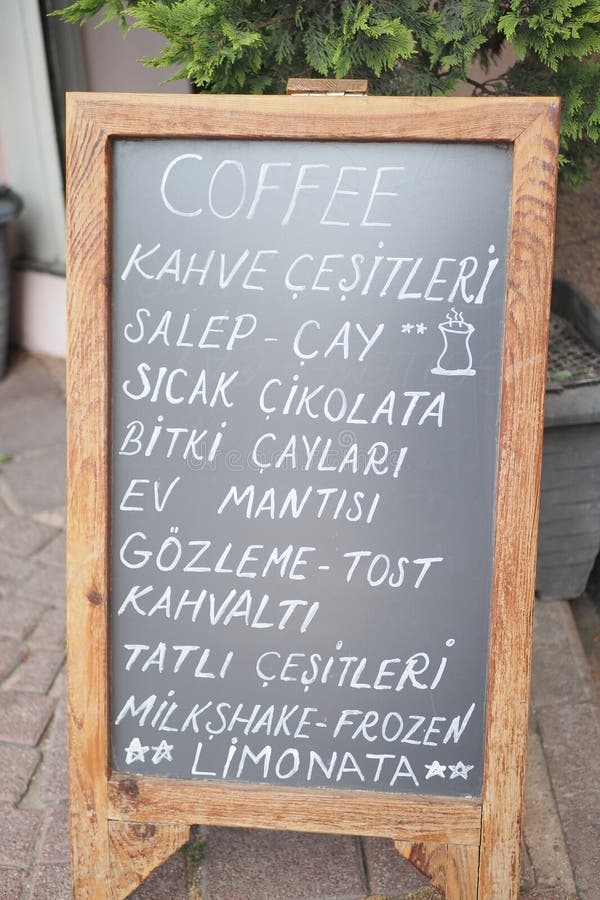 COFFEE
KAHVE ÇEŞİTLERİ
SALEP - ÇAY **
SICAK ÇİKOLATA
BİTKİ ÇAYLARI
EV MANTISI
GÖZLEME - TOST
KAHVALTI
TATLI ÇEŞİTLERİ
MİLKŞHAKE - FROZEN
LİMONATA